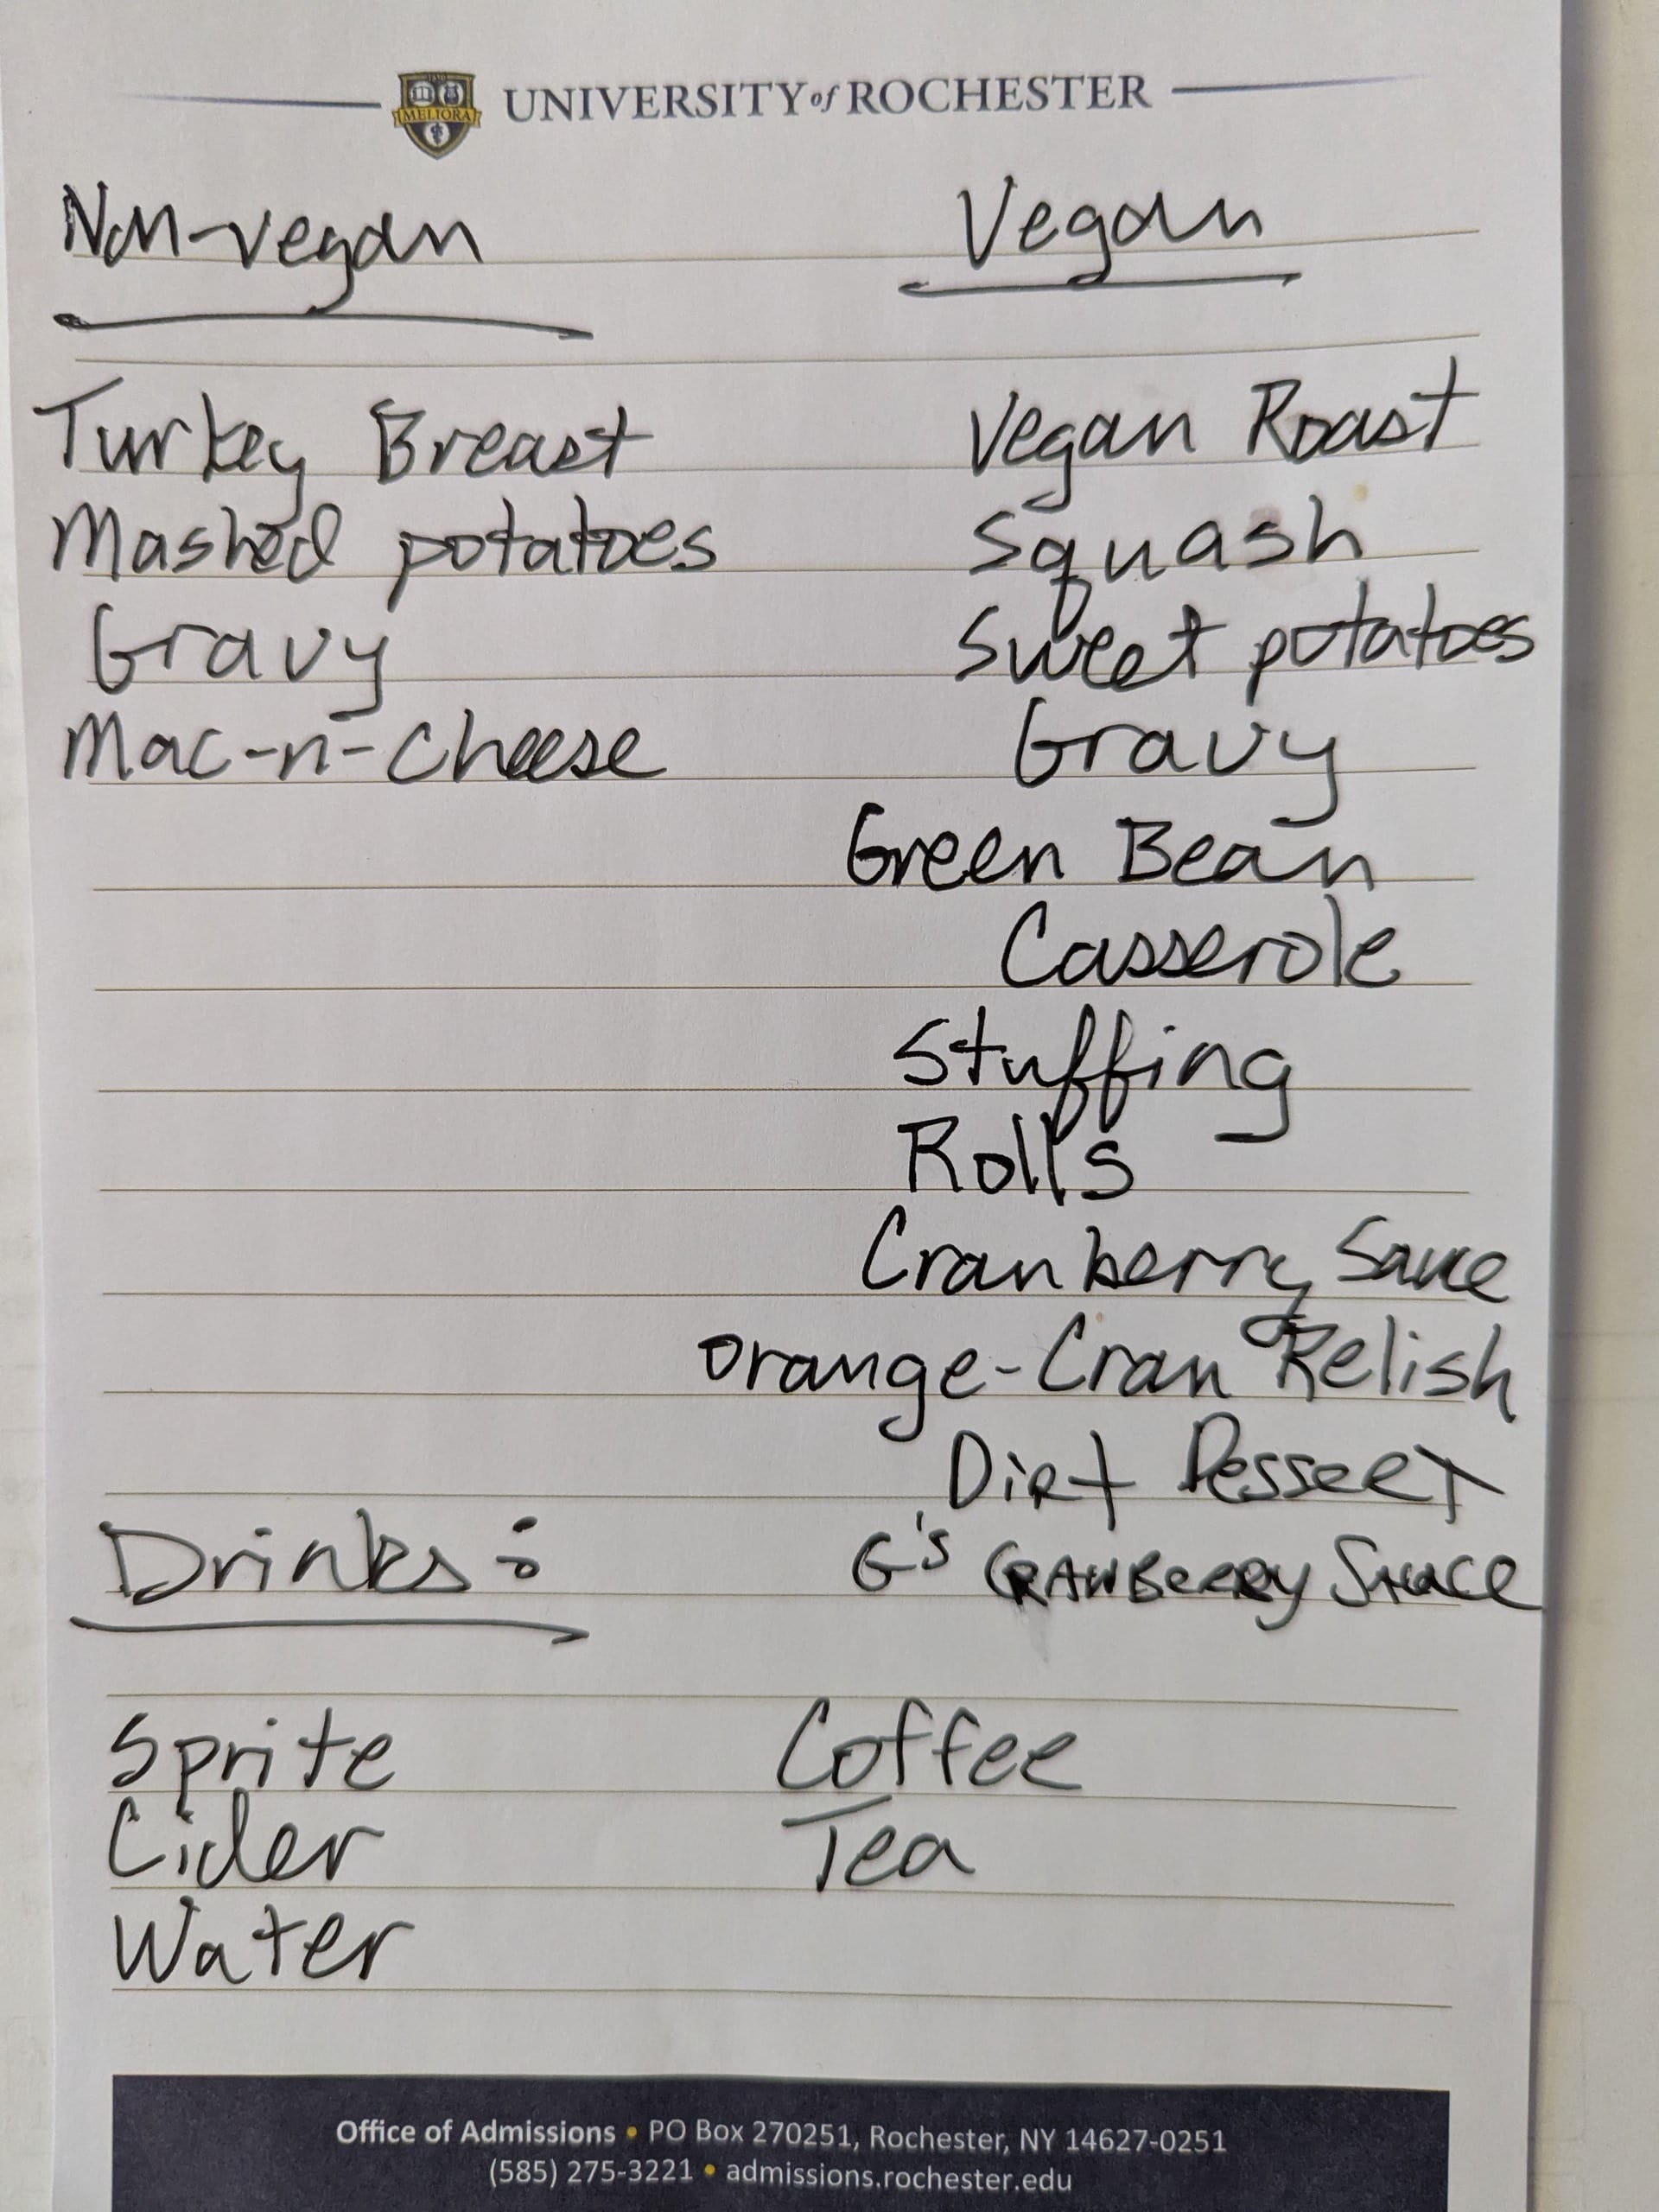 MELIORA
UNIVERSITY of ROCHESTER
Non-vegan Vegan
Turkey Breast Vegan Roast
Mashed potatoes Squash
Gravy Sweet potatoes
Mac-n-cheese Gravy
Green Bean
Casserole
Stuffing
Rolls
Cranberry Sauce
Orange-Cran Relish
Dirt Dessert
Drinks: G's CRANBERRY SAUCE
Sprite Coffee
Cider Tea
Water
Office of Admissions • PO Box 270251, Rochester, NY 14627-0251
(585) 275-3221 • admissions.rochester.edu